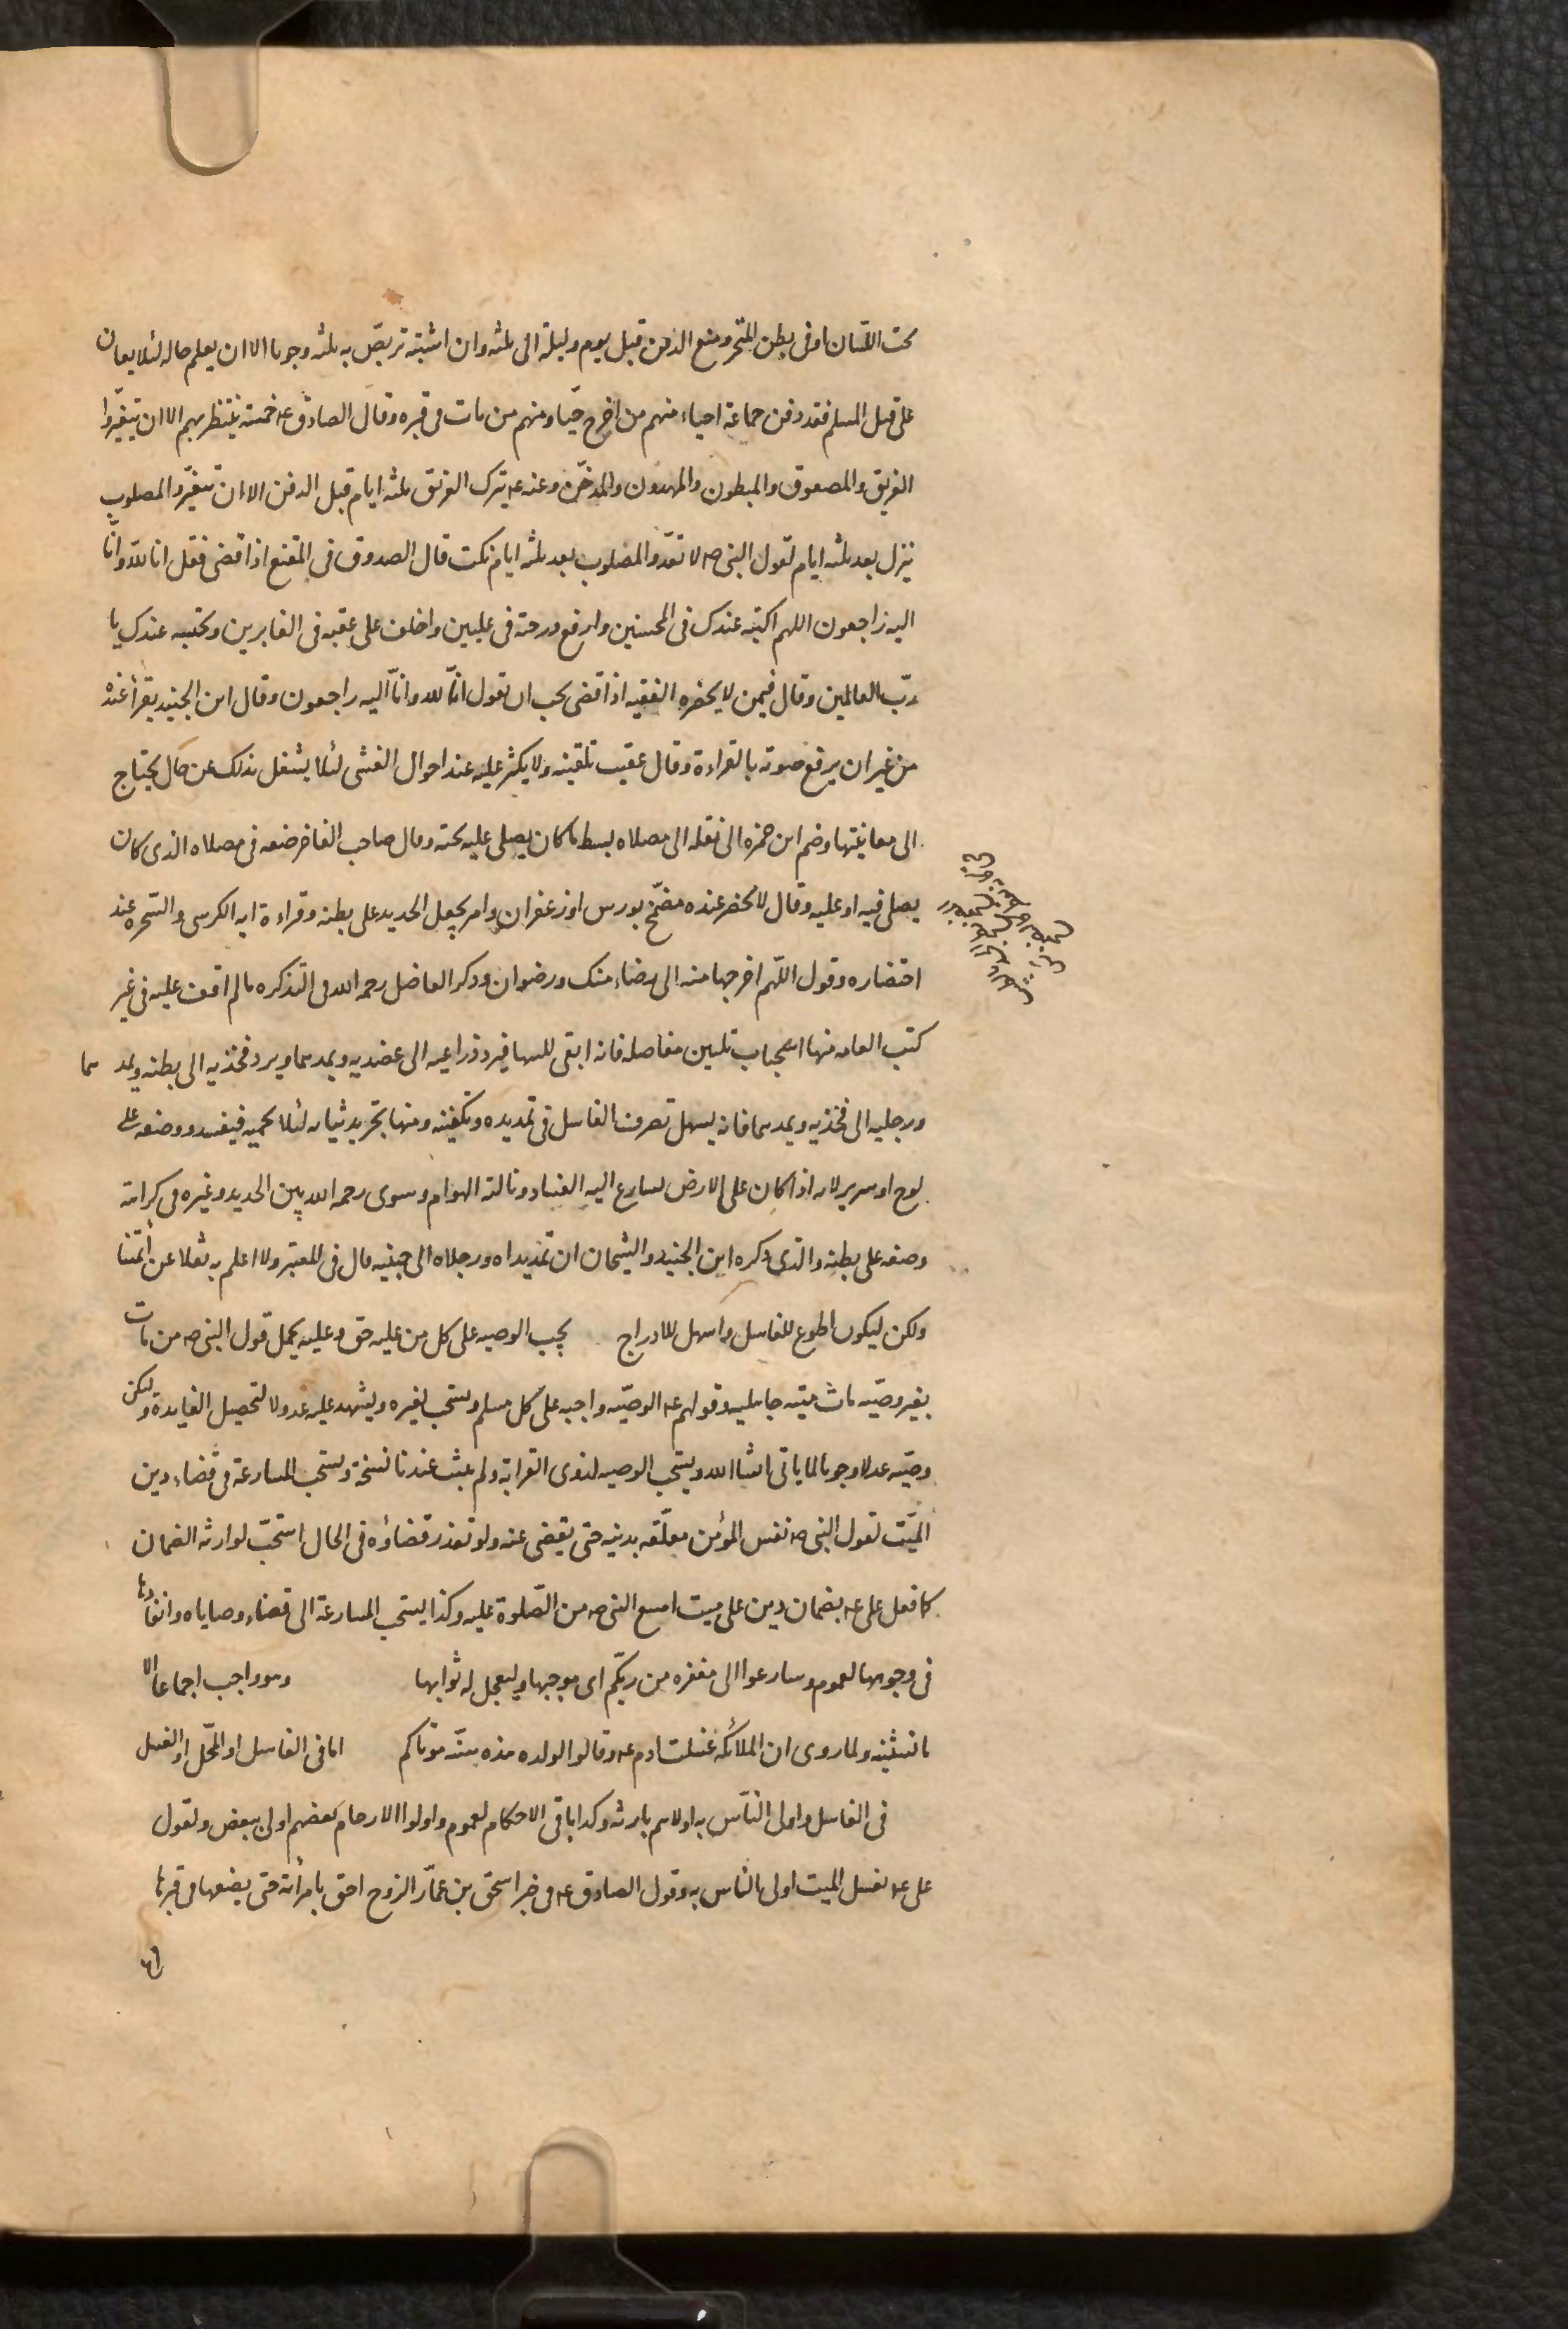 تحت اللسان او فى بطن المنخر ومنع الدفن قبل يوم وليلة الى ثلثه وان اشتبه تربص به ثلثه وجوبا الا ان يعلم حاله لئلا يعان
على قتل المسلم فقد دفن جماعة احياء منهم من اخرج حيّا ومنهم من مات فى قبره وقال الصادق عه خمسة ينتظر بهم الا ان تتغيّروا
الغريق والمصعوق والمبطون والمهدون والمدخّن وعنه عه يترك الغريق ثلثه ايام قبل الدفن الا ان يتغيّر والمصلوب
ينزل بعد ثلثه ايام لقول النبى صه لا تقدّوا المصلوب بعد ثلثه ايام نكت قال الصدوق فى المقنع اذا قضى فقل انا لله وانّا
اليه راجعون اللهم اكتبه عندك فى المحسنين وارفع درجته فى عليين واخلف على عقبه فى الغابرين ونحتسبه عندك يا
ربّ العالمين وقال فيمن لا يحضره الفقيه اذا قضى يجب ان يقول انّا لله وانّا اليه راجعون وقال ابن الجنيد يقرأ عنده
من غير ان يرفع صوته بالقراءة وقال عقيب تلقينه ولا يكثر عليه عند احوال الغشى لئلا يشتغل بذلك عن حال يحتاج
الى معاينتها وضم ابن حمزه الى نقله الى مصلاه بسط ما كان يصلى عليه تحته وقال صاحب الفاخر ضعه فى مصلاه الذى كان
يصلى فيه او عليه وقال لا يحضر عنده مضمّخ بورس او زعفران وامر بجعل الحديد على بطنه وقراءة ايه الكرسى والسخره عند
احتضاره وقول اللّهم اخرجها منه الى رضاء منك ورضوان وذكر الفاضل رحمه الله فى التذكره ما لم اقف عليه فى غير
كتب العامه منها استحباب تليين مفاصله فانه ابقى للينها فيرد ذراعيه الى عضديه ويمدهما ويرد فخذيه الى بطنه ويمدهما
ورجليه الى فخذيه ويمدهما فانه يسهل تصرف الغاسل فى تمديده وتكفينه ومنها تجريد ثيابه لئلا يحميه فيفسد ووضعه على
لوح او سرير لانه اذا كان على الارض يسارع اليه الفساد ونالته الهوام وسوى رحمه الله بين الحديد وغيره فى كراهة
وضعه على بطنه والذى ذكره ابن الجنيد والشيخان ان تمد يداه ورجلاه الى جنبيه قال فى المعتبر ولا اعلم به نقلا عن أئمتنا
ولكن ليكون اطوع للغاسل واسهل للادراج يجب الوصيه على كل من عليه حق وعليه يحمل قول النبى صه من مات
بغير وصيّه مات ميتة جاهليه وقولهم عه الوصيّه واجبه على كل مسلم ويستحب لغيره ويشهد عليه عدولا لتحصيل الفايدة وليكن
وصيّه عدلا وجوبا لما ياتى انشا الله ويستحب الوصيه لذوى القرابة ولم يثبت عندنا نسخة ويستحب المسارعة فى قضاء دين
الميّت لقول النبى صه نفس المؤمن معلّقه بدينه حتى يقضى عنه ولو تعذر قضاؤه فى الحال استحبّ لوارثه الضمان
كما فعل على عه بضمان دين على ميت امتنع النبى صه من الصّلوة عليه وكذا يستحب المسارعة الى قضاء وصاياه وانفاذها
فى وجوهها لعموم وسارعوا الى مغفره من ربّكم اى موجبها وليعجل له ثوابها وهو واجب اجماعا الا
ما نستثنيه ولما روى ان الملائكه غسلت ادم عه وقالوا لولده هذه سنّه موتاكم اما فى الغاسل او المحّل او الغسل
فى الغاسل واولى النّاس به اولاهم بارثه وكذا باقى الاحكام لعموم واولوا الارحام بعضهم اولى ببعض ولقول
على عه يغسل الميت اولى الناس به وقول الصادق عه فى خبر اسحق بن عمّار الزوج احق بامرأته حتى يضعها فى قبرها